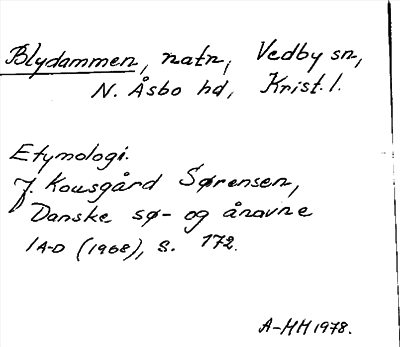 Blydammen, natn, Vedby sn,
N. Åsbo hd, Krist. l.
Etymologi.
J. Kousgård Sørensen,
Danske sø- og ånavne
1 A-D (1968), s. 172.
A-HH 1978.